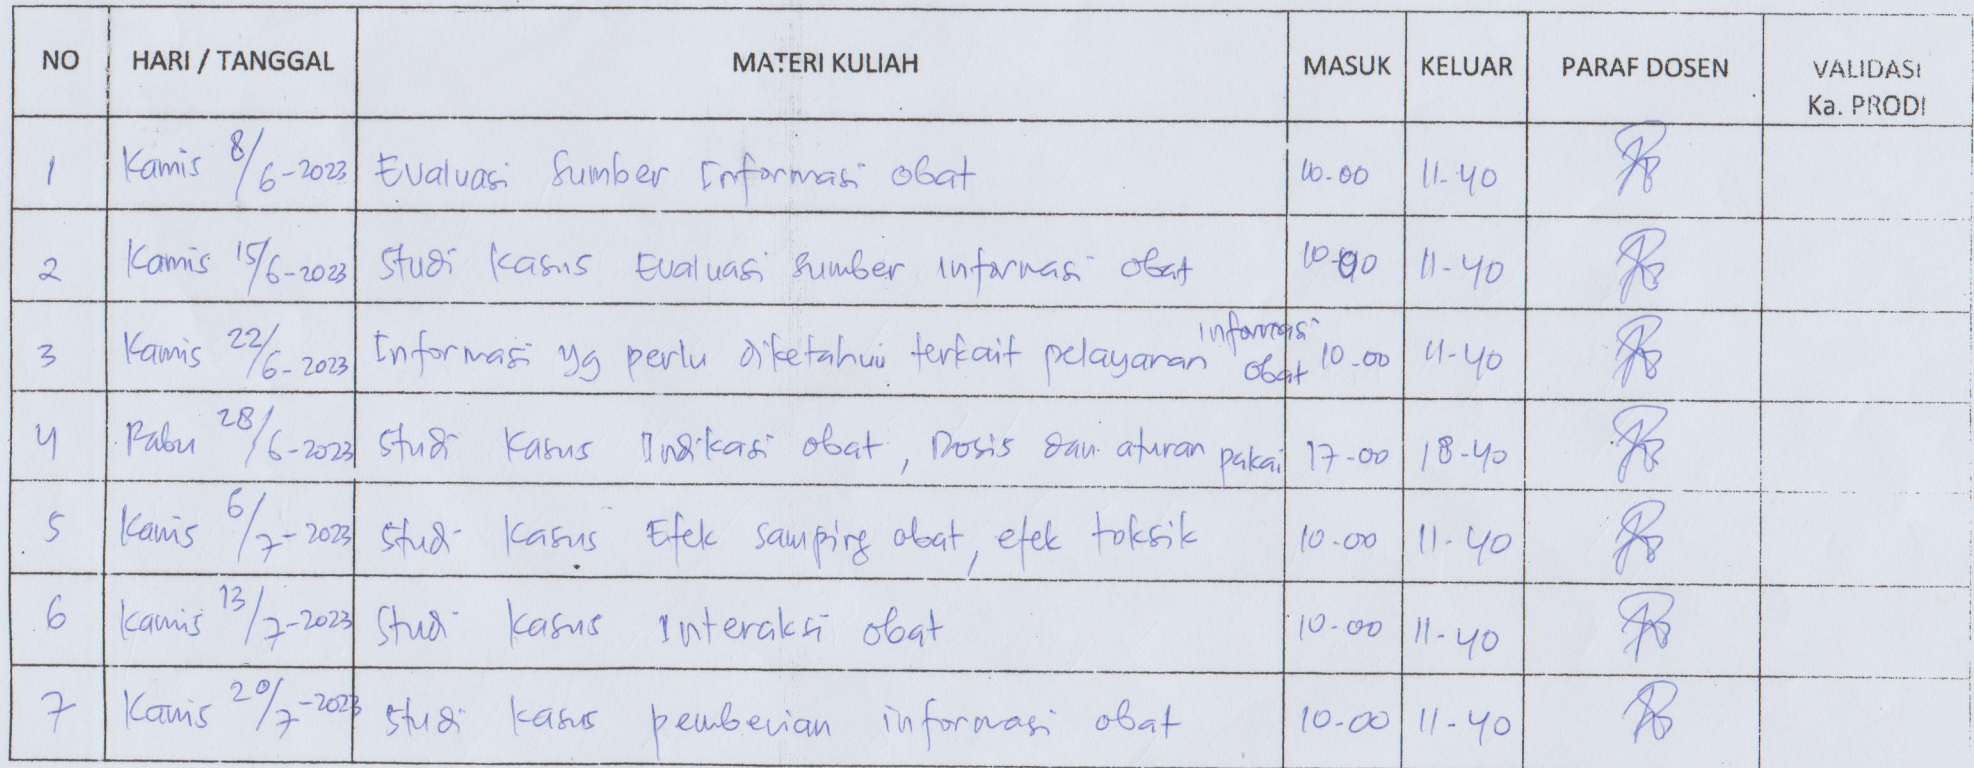 NO HARI / TANGGAL MATERI KULIAH MASUK KELUAR PARAF DOSEN VALIDASI Ka. PRODI
1 Kamis 8/6-2023 Evaluasi Sumber Informasi obat 10.00 11-40
2 Kamis 15/6-2023 Studi Kasus Evaluasi Sumber Informasi obat 10-00 11-40
3 Kamis 22/6-2023 Informasi yg perlu diketahui terkait pelayanan informasi obat 10.00 11-40
4 Rabu 28/6-2023 Studi Kasus Indikasi obat, Dosis dan aturan pakai 17-00 18-40
5 Kamis 6/7-2023 Studi Kasus Efek samping obat, efek toksik 10-00 11-40
6 Kamis 13/7-2023 Studi Kasus Interaksi obat 10-00 11-40
7 Kamis 20/7-2023 Studi Kasus pemberian informasi obat 10-00 11-40